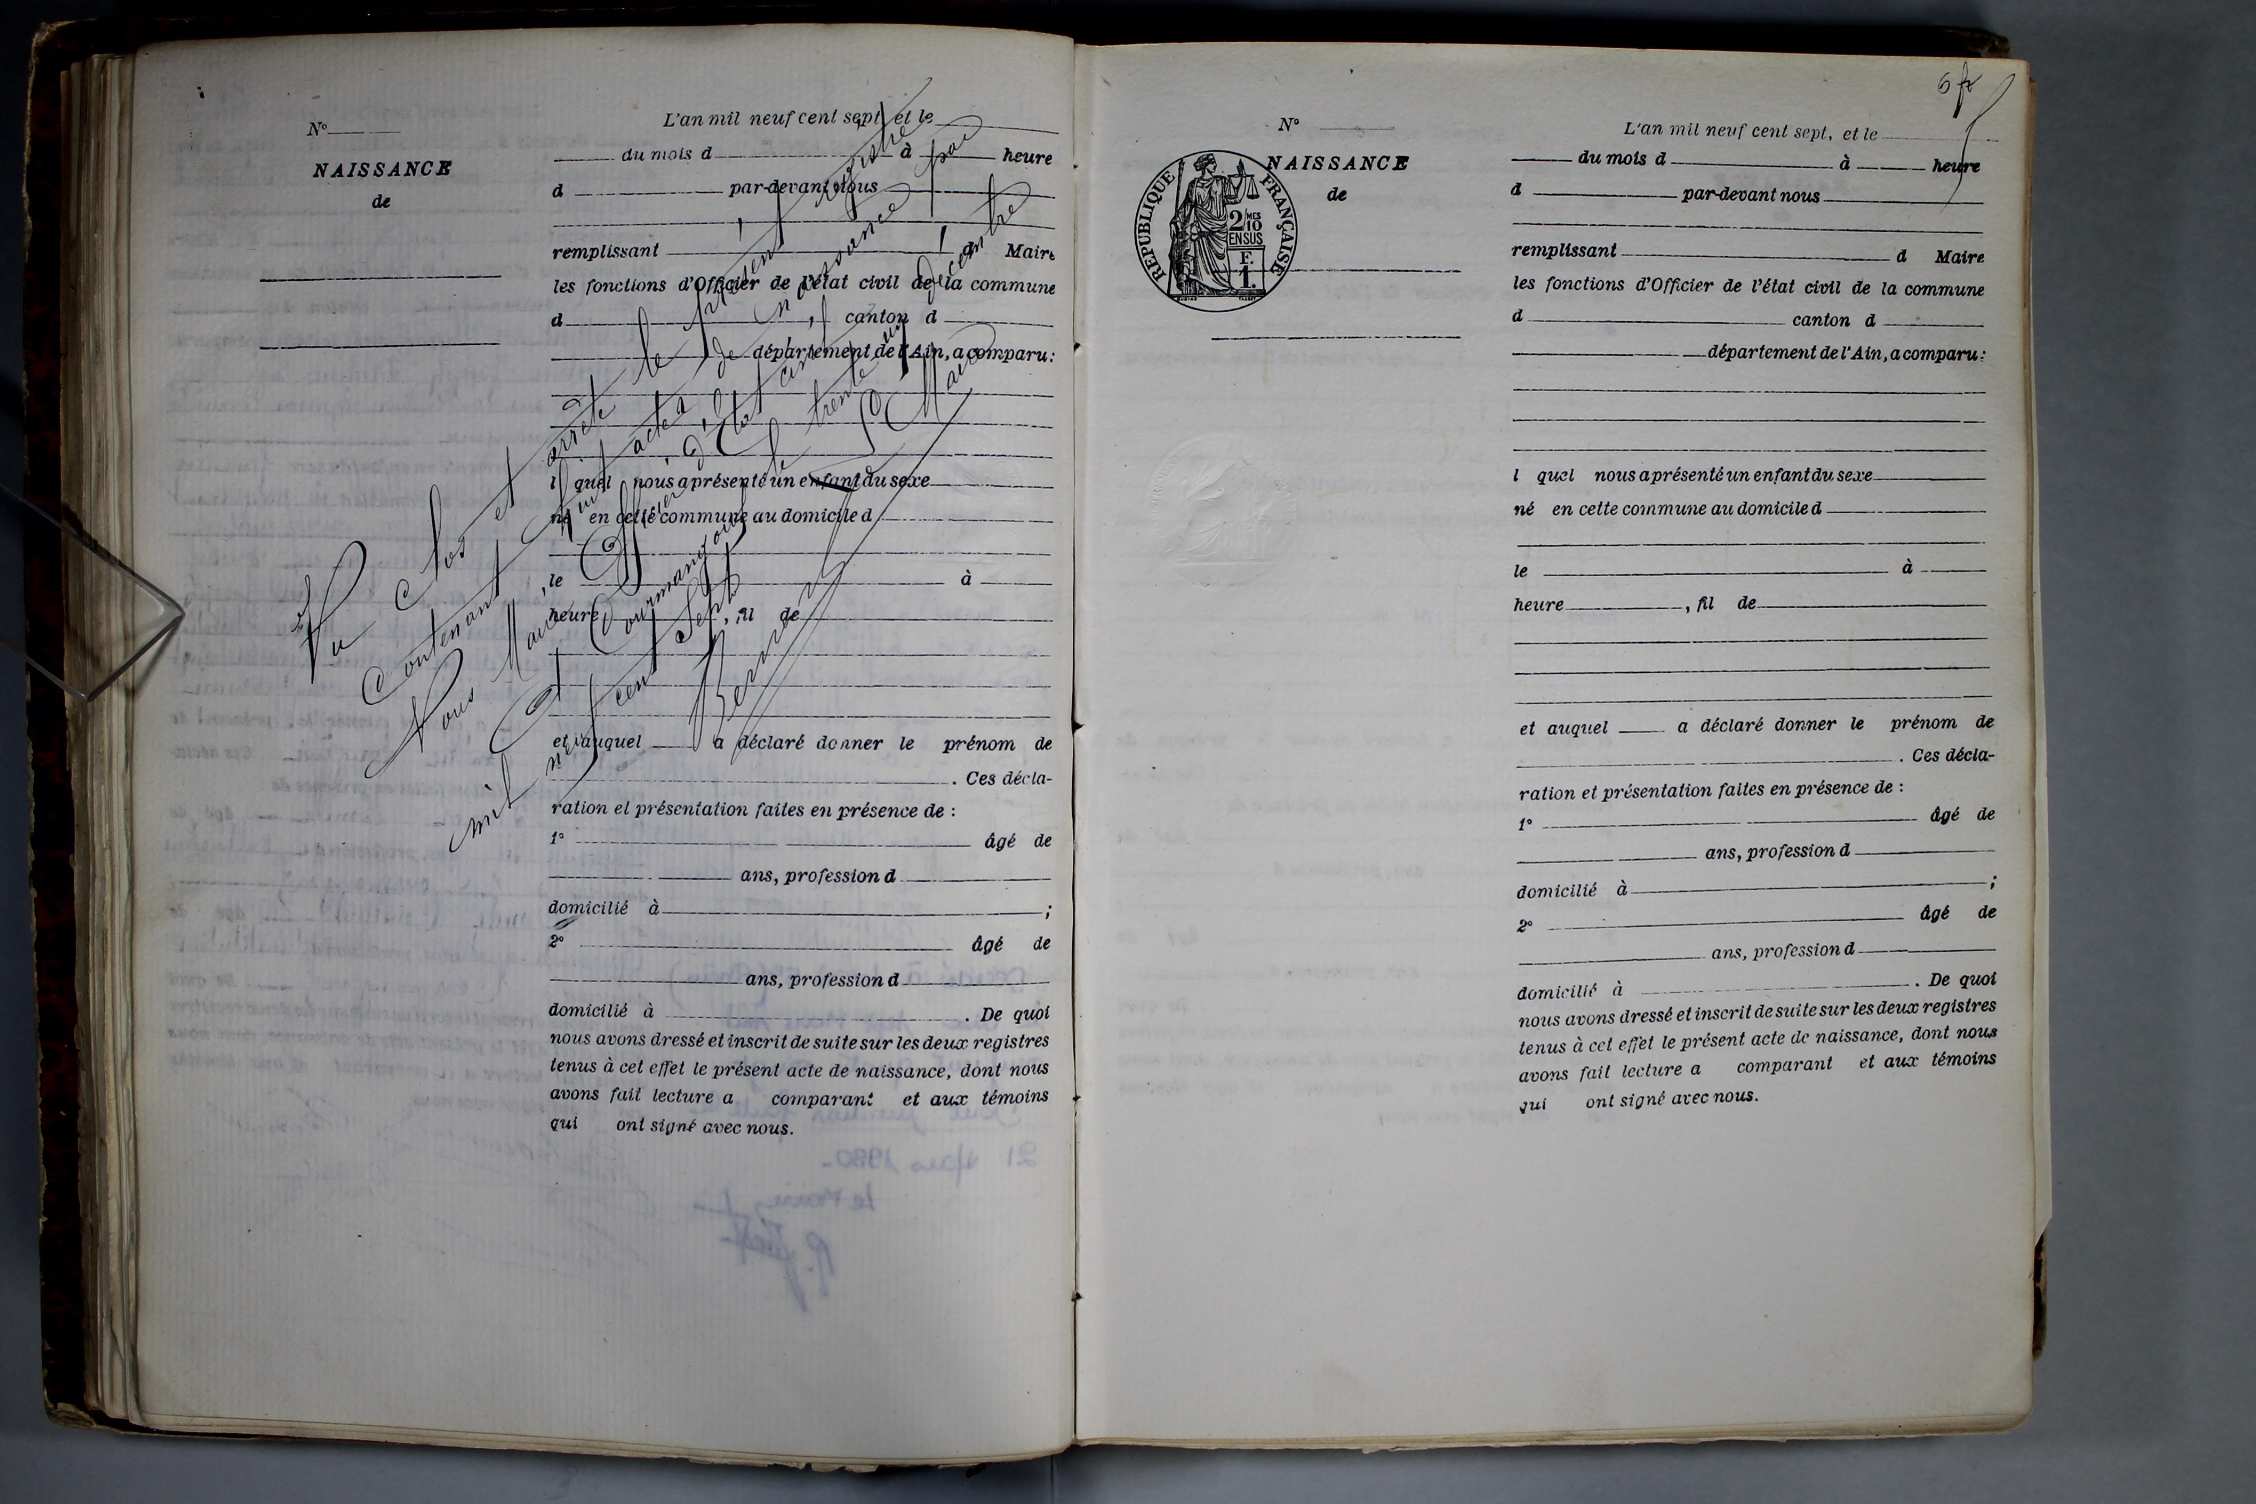 N°
NAISSANCE
de
L'an mil neuf cent sept, et le
du mois d à heure
d par-devant nous
remplissant d Maire
les fonctions d'Officier de l'état civil de la commune
d canton d
département de l'Ain, a comparu:
l quel nous a présenté un enfant du sexe
né en cette commune au domicile d
le à
heure , fil de
et auquel a déclaré donner le prénom de
. Ces décla-
ration et présentation faites en présence de :
1° âgé de
ans, profession d
domicilié à ;
2° âgé de
ans, profession d
domicilié à . De quoi
nous avons dressé et inscrit de suite sur les deux registres
tenus à cet effet le présent acte de naissance, dont nous
avons fait lecture a comparant et aux témoins
qui ont signé avec nous.
Vu Clos et arrêté le présent registre
Contenant huit actes de naissance par
Nous Maire, Officier d'Etat civil
le trente un décembre
mil neuf cent sept
Le Maire
N°
NAISSANCE
de
REPUBLIQUE FRANÇAISE
2/10 MES
EN SUS
F.
1.
L'an mil neuf cent sept, et le
du mois d à heure
d par-devant nous
remplissant d Maire
les fonctions d'Officier de l'état civil de la commune
d canton d
département de l'Ain, a comparu:
l quel nous a présenté un enfant du sexe
né en cette commune au domicile d
le à
heure , fil de
et auquel a déclaré donner le prénom de
. Ces décla-
ration et présentation faites en présence de :
1° âgé de
ans, profession d
domicilié à ;
2° âgé de
ans, profession d
domicilié à . De quoi
nous avons dressé et inscrit de suite sur les deux registres
tenus à cet effet le présent acte de naissance, dont nous
avons fait lecture a comparant et aux témoins
qui ont signé avec nous.